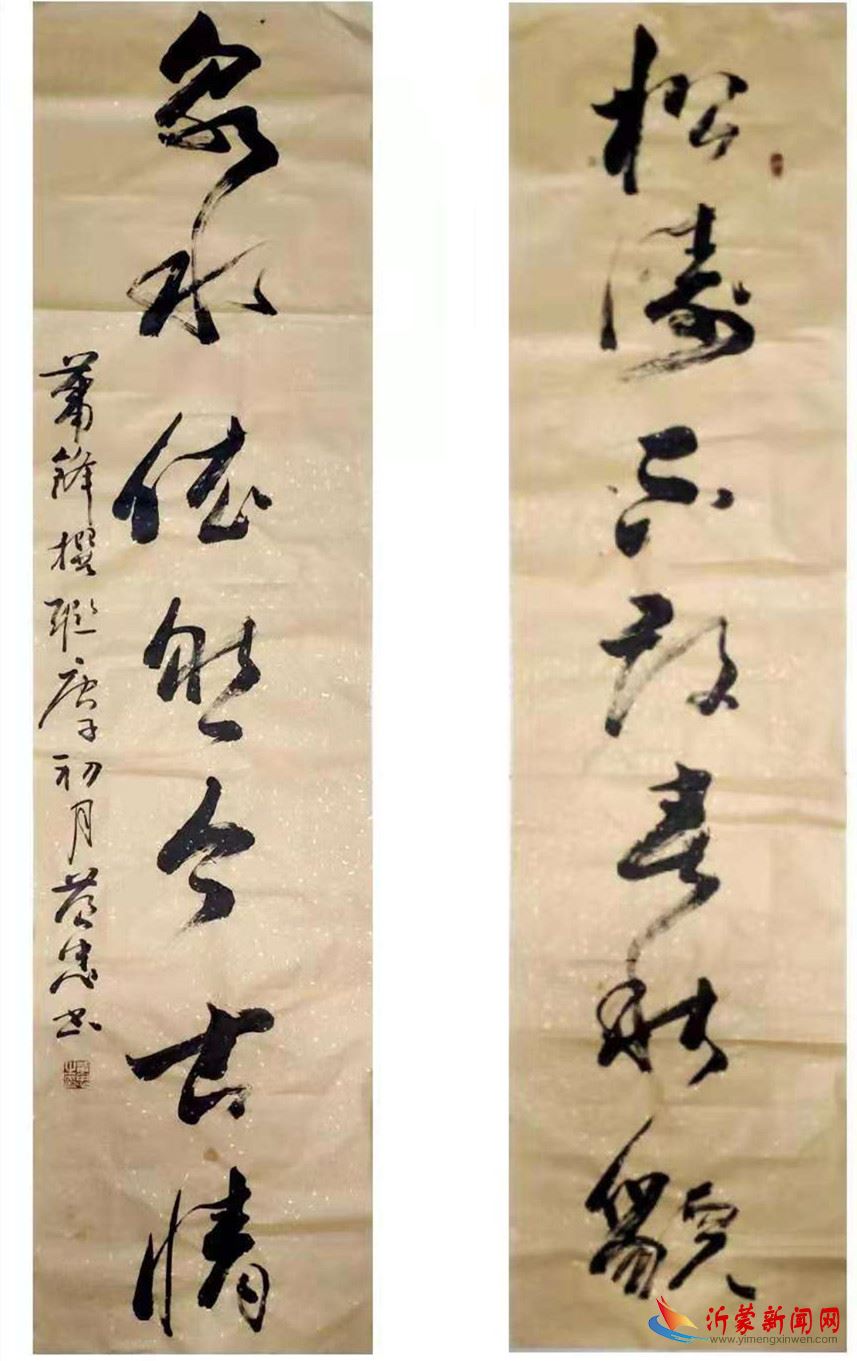 松濤不改春秋貌
泉水依然今古情
蕭鋒撰聯庚子初月忠书
沂蒙新闻网
www.yimengxinwen.com